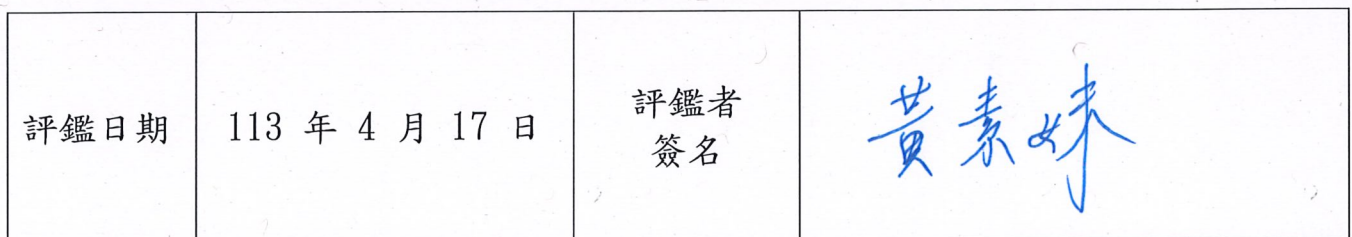 評鑑日期
113 年 4 月 17 日
評鑑者
簽名
黃素妹